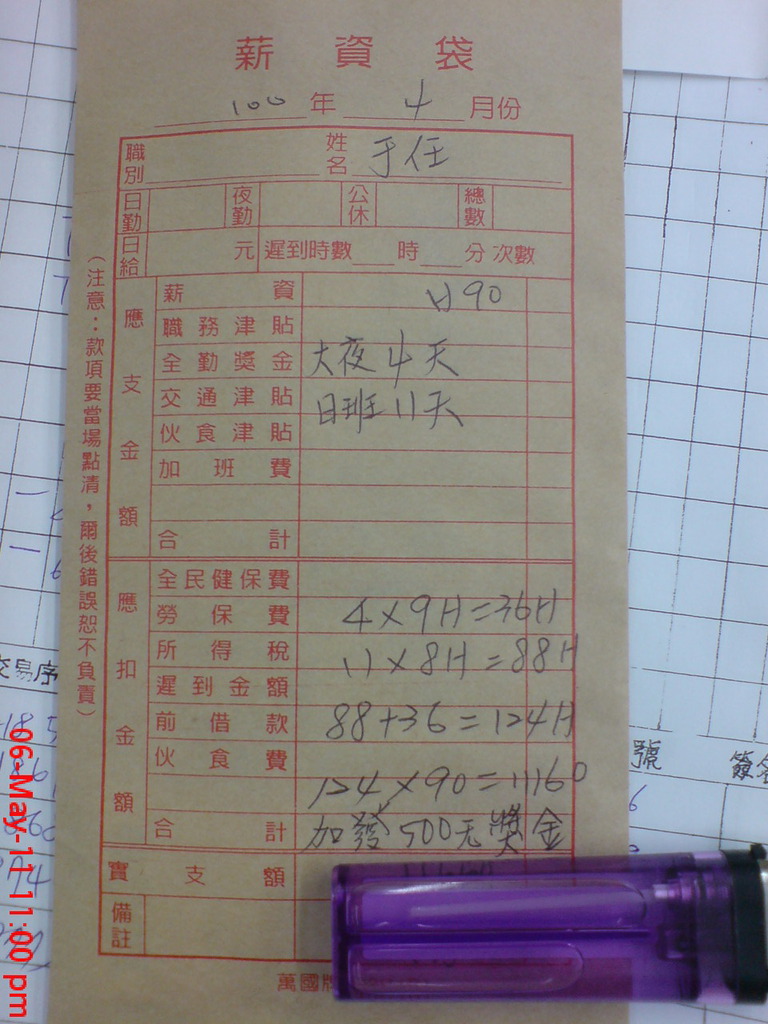 薪資袋
100年4月份
職別 姓名 于任
日勤 夜勤 公休 總數
日給 元 遲到時數 時 分 次數
應支金額
薪資 H90
職務津貼
全勤獎金 大夜4天
交通津貼 日班11天
伙食津貼
加班費
合計
應扣金額
全民健保費
勞保費 4×9H=36H
所得稅 11×8H=88H
遲到金額
前借款 88+36=124H
伙食費
124×90=11160
合計 加發500元獎金
實支額
備註
萬國牌
(注意:款項要當場點清,爾後錯誤恕不負責)
交易序
號
簽名
06-May-11 11:00 pm